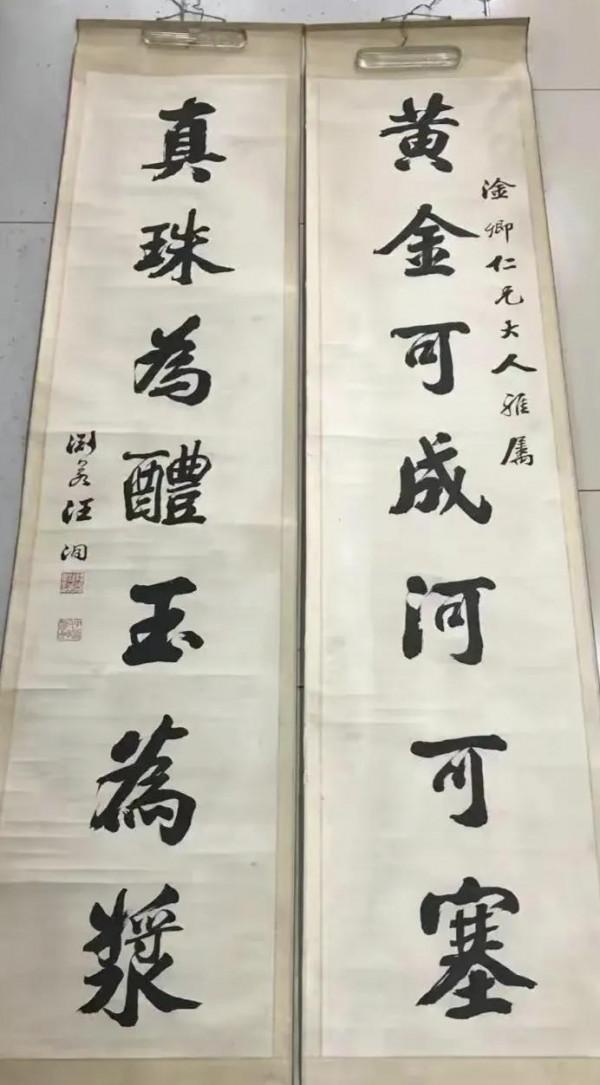 淦卿仁兄大人雅属
黄金可成河可塞
真珠為醴玉為漿
渕若汪洵